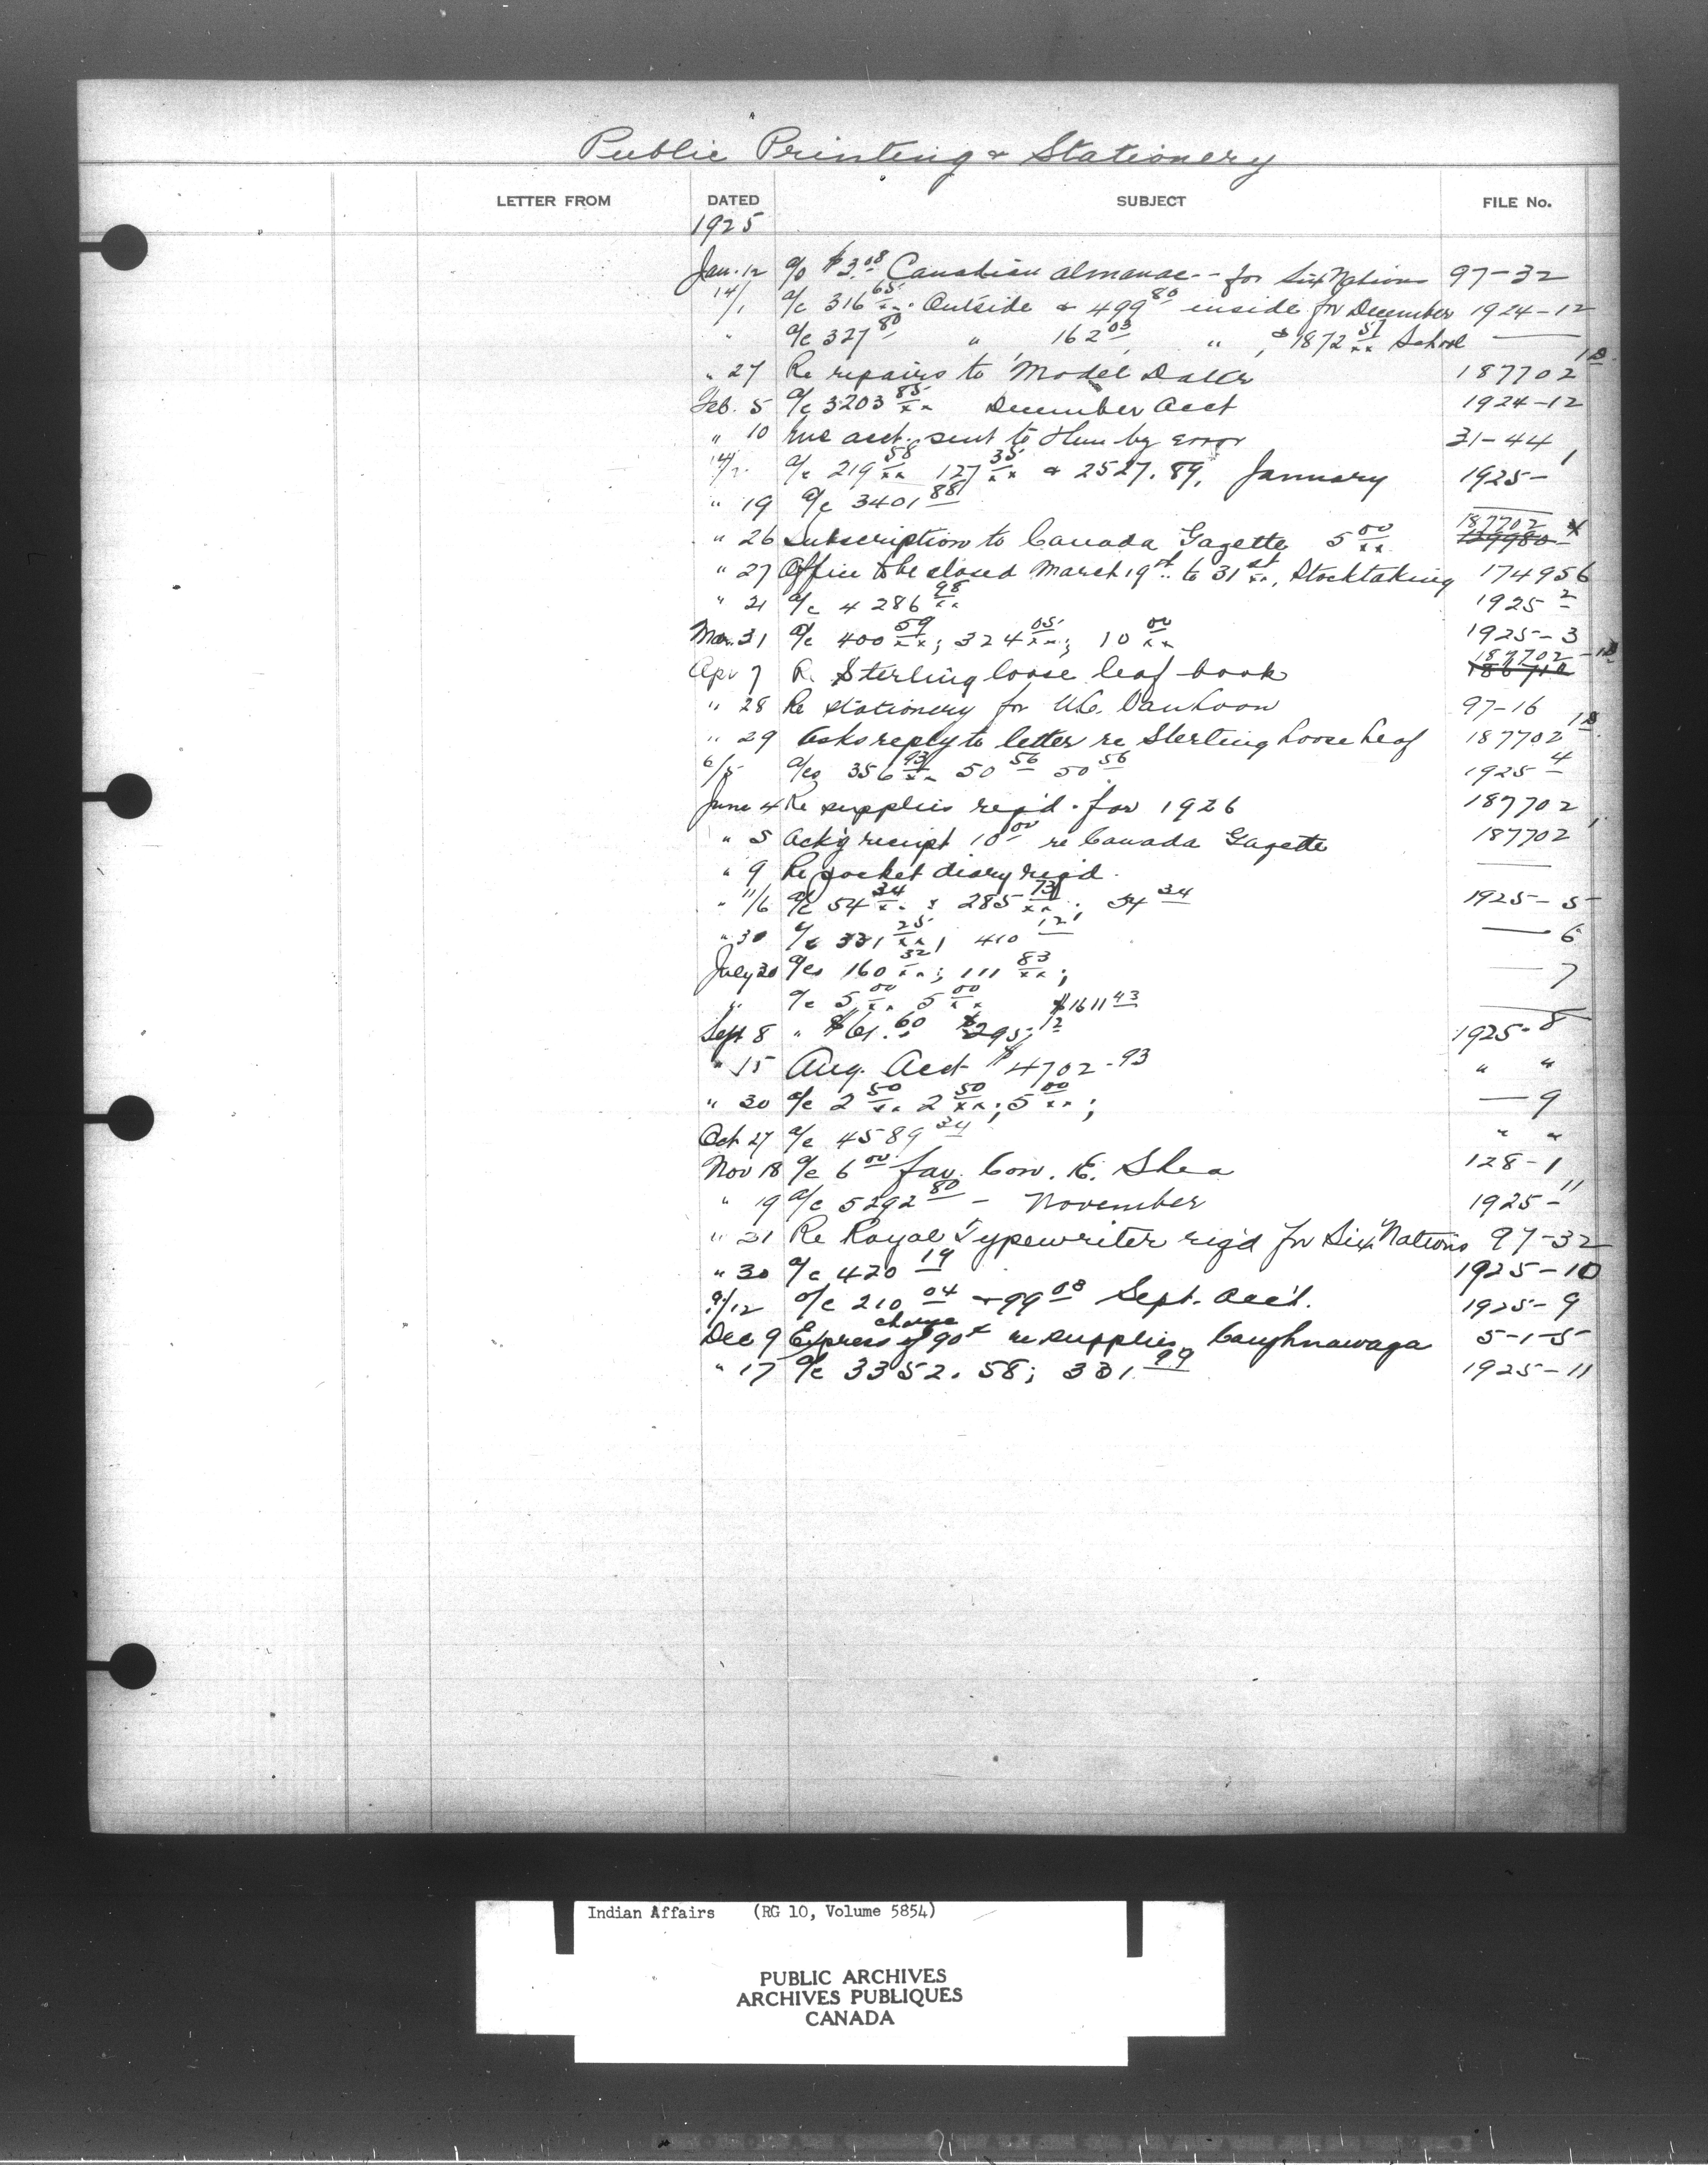 Public Printing & Stationery
LETTER FROM DATED SUBJECT FILE No.
1925
Jan. 12 a/c $3.08 Canadian almanac -- for Six Nations 97-32
14/1 a/c 316 65/xx Outside & 499 80 inside for December 1924-12
" a/c 327 80 " 162 03 " & 1872 57/xx School —
" 27 Re repairs to Model Dater 187702 1D
Feb. 5 a/c 3203 85/xx December Acct 1924-12
" 10 acct. sent to them by error 31-44
14/2 a/c 219 58/xx 127 35/xx & 2527.89, January 1925-1
" 19 a/c 3401 88
" 26 Subscription to Canada Gazette 5 00/xx 187702
" 27 Office to be closed March 19th to 31st, Stocktaking 174956
" 21 a/c 4286 98/xx 1925-2
Mar. 31 a/c 400 59/xx; 324 05/xx; 10 00/xx 1925-3
Apr 7 R. Sterling loose leaf book 187702-1D
" 28 Re stationery for 97-16
" 29 Asks reply to letter re Sterling Loose Leaf 187702 1D
6/5 a/cs 356 93/xx 50 56 50 56 1925-4
June 4 Re supplies req'd. for 1926 187702
" 5 Ack'g receipt 10 00 re Canada Gazette 187702 1
" 9 Re pocket diary req'd. —
" 11/6 a/c 54 34/xx; 285 73/xx; 34 34 1925-5
" 30 a/c 331 25/xx, 410 12 — 6
July 30 a/cs 160 32/xx; 111 83/xx; — 7
" a/c 5 00/xx 5 00/xx $1611 43 —
Sept 8 " $61.60 $295.12 1925-8
" 15 Aug. Acct $4702-93 " "
" 30 a/c 2 50/xx 2 50/xx; 5 00/xx; — 9
Oct 27 a/c 4589 34 " "
Nov 18 a/c 6 00 fav. Con. E. Shea 128-1
" 19 a/c 5292 80 - November 1925-11
" 21 Re Royal Typewriter req'd for Six Nations 97-32
" 30 a/c 420 19 1925-10
9/12 a/c 210 04 & 99 08 Sept. Acc't. 1925-9
Dec 9 Express charge of 90¢ re supplies Caughnawaga 5-1-5
" 17 a/c 3352.58; 331 99 1925-11
Indian Affairs (RG 10, Volume 5854)
PUBLIC ARCHIVES
ARCHIVES PUBLIQUES
CANADA